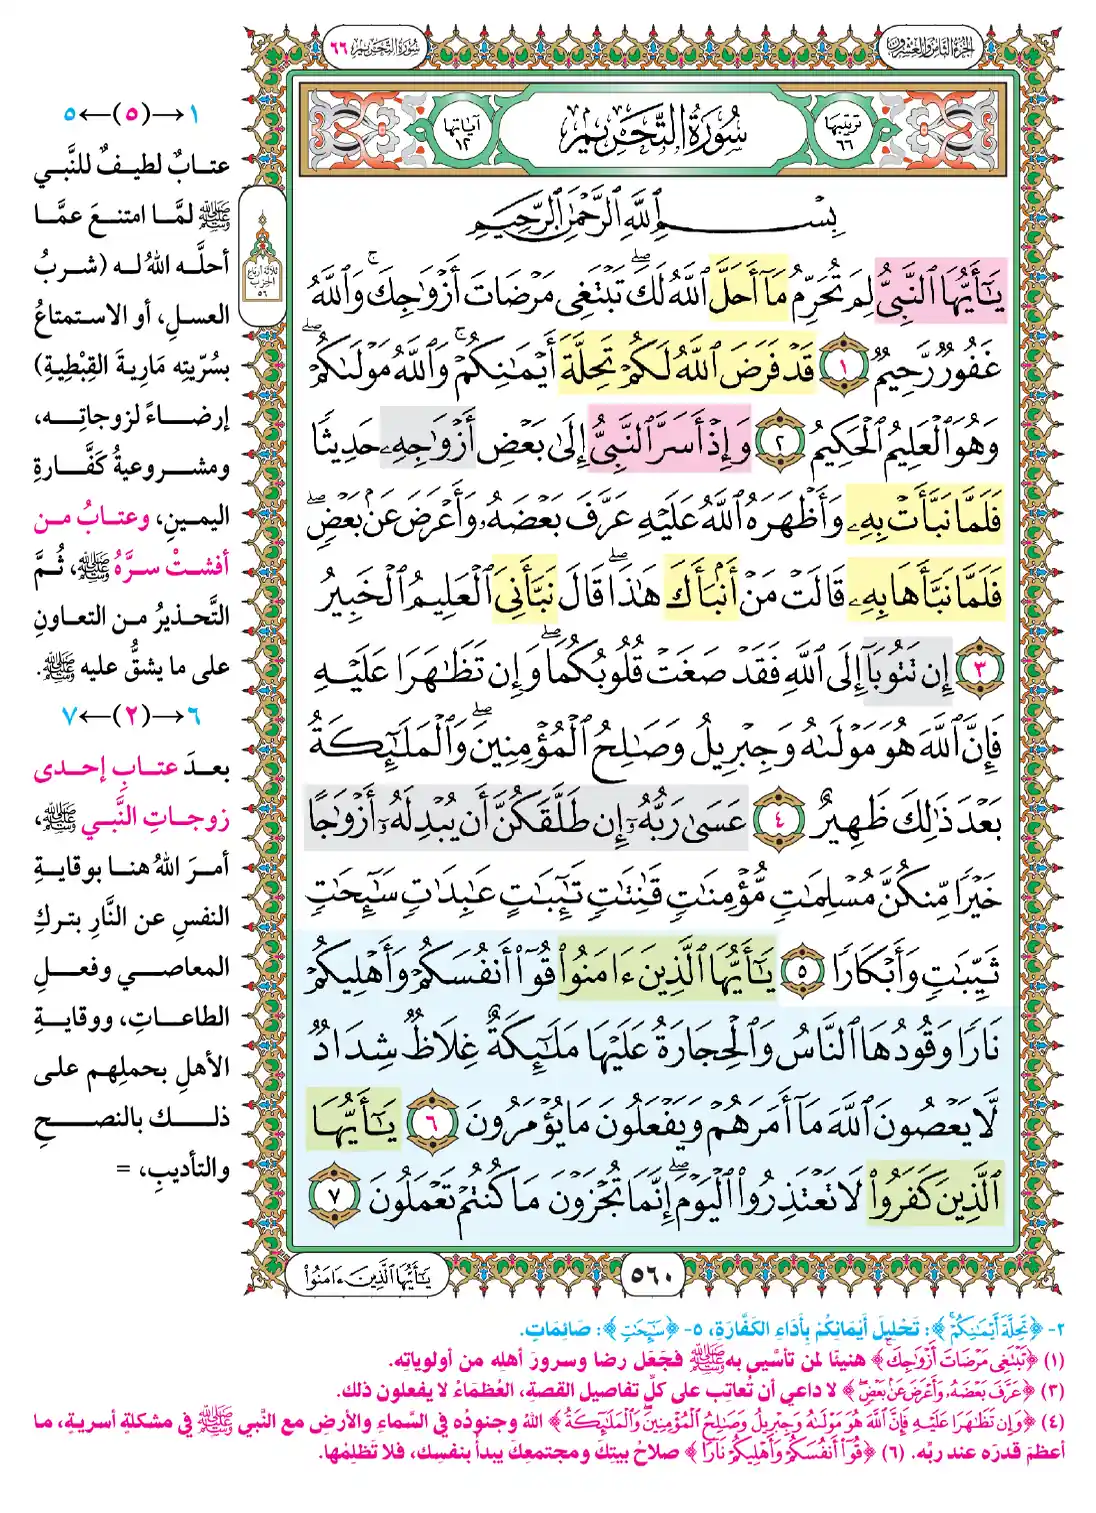 الجزء الثامن والعشرون
سورة التحريم ٦٦
ترتيبها ٦٦
سُورَةُ التَّحْرِيمِ
آياتها ١٢
بِسْمِ ٱللَّهِ ٱلرَّحْمَٰنِ ٱلرَّحِيمِ
يَـٰٓأَيُّهَا ٱلنَّبِىُّ لِمَ تُحَرِّمُ مَآ أَحَلَّ ٱللَّهُ لَكَ ۖ تَبْتَغِى مَرْضَاتَ أَزْوَٰجِكَ ۚ وَٱللَّهُ
غَفُورٌ رَّحِيمٌ ١ قَدْ فَرَضَ ٱللَّهُ لَكُمْ تَحِلَّةَ أَيْمَـٰنِكُمْ ۚ وَٱللَّهُ مَوْلَىٰكُمْ ۖ
وَهُوَ ٱلْعَلِيمُ ٱلْحَكِيمُ ٢ وَإِذْ أَسَرَّ ٱلنَّبِىُّ إِلَىٰ بَعْضِ أَزْوَٰجِهِۦ حَدِيثًا
فَلَمَّا نَبَّأَتْ بِهِۦ وَأَظْهَرَهُ ٱللَّهُ عَلَيْهِ عَرَّفَ بَعْضَهُۥ وَأَعْرَضَ عَنۢ بَعْضٍ ۖ
فَلَمَّا نَبَّأَهَا بِهِۦ قَالَتْ مَنْ أَنۢبَأَكَ هَـٰذَا ۖ قَالَ نَبَّأَنِىَ ٱلْعَلِيمُ ٱلْخَبِيرُ
٣ إِن تَتُوبَآ إِلَى ٱللَّهِ فَقَدْ صَغَتْ قُلُوبُكُمَا ۖ وَإِن تَظَـٰهَرَا عَلَيْهِ
فَإِنَّ ٱللَّهَ هُوَ مَوْلَىٰهُ وَجِبْرِيلُ وَصَـٰلِحُ ٱلْمُؤْمِنِينَ ۖ وَٱلْمَلَـٰٓئِكَةُ
بَعْدَ ذَٰلِكَ ظَهِيرٌ ٤ عَسَىٰ رَبُّهُۥٓ إِن طَلَّقَكُنَّ أَن يُبْدِلَهُۥٓ أَزْوَٰجًا
خَيْرًا مِّنكُنَّ مُسْلِمَـٰتٍ مُّؤْمِنَـٰتٍ قَـٰنِتَـٰتٍ تَـٰٓئِبَـٰتٍ عَـٰبِدَٰتٍ سَـٰٓئِحَـٰتٍ
ثَيِّبَـٰتٍ وَأَبْكَارًا ٥ يَـٰٓأَيُّهَا ٱلَّذِينَ ءَامَنُوا۟ قُوٓا۟ أَنفُسَكُمْ وَأَهْلِيكُمْ
نَارًا وَقُودُهَا ٱلنَّاسُ وَٱلْحِجَارَةُ عَلَيْهَا مَلَـٰٓئِكَةٌ غِلَاظٌ شِدَادٌ
لَّا يَعْصُونَ ٱللَّهَ مَآ أَمَرَهُمْ وَيَفْعَلُونَ مَا يُؤْمَرُونَ ٦ يَـٰٓأَيُّهَا
ٱلَّذِينَ كَفَرُوا۟ لَا تَعْتَذِرُوا۟ ٱلْيَوْمَ ۖ إِنَّمَا تُجْزَوْنَ مَا كُنتُمْ تَعْمَلُونَ ٧
ثلاثة أرباع
الحزب
٥٦
١→(٥)←٥
عتابٌ لطيفٌ للنَّبي
ﷺ لمَّا امتنعَ عمَّا
أحلَّه اللهُ له (شربُ
العسلِ، أو الاستمتاعُ
بسُرِّيته مَارِيةَ القِبْطِيةِ)
إرضاءً لزوجاتِه،
ومشروعيةُ كفَّارةِ
اليمينِ، وعتابُ من
أفشتْ سرَّهُ ﷺ، ثُمَّ
التَّحذيرُ من التعاونِ
على ما يشقُّ عليه ﷺ.
٦→(٢)←٧
بعدَ عتابِ إحدى
زوجاتِ النَّبي ﷺ،
أمرَ اللهُ هنا بوقايةِ
النفسِ عن النَّارِ بتركِ
المعاصي وفعلِ
الطاعاتِ، ووقايةِ
الأهلِ بحملِهم على
ذلك بالنصحِ
والتأديبِ، =
٥٦٠
يَـٰٓأَيُّهَا ٱلَّذِينَ ءَامَنُوا۟
٢- ﴿تَحِلَّةَ أَيْمَـٰنِكُمْ ۚ﴾: تَحْلِيلَ أَيْمَانِكُمْ بِأَدَاءِ الكَفَّارَةِ، ٥- ﴿سَـٰٓئِحَـٰتٍ﴾: صَائِمَاتٍ.
(١) ﴿تَبْتَغِى مَرْضَاتَ أَزْوَٰجِكَ ۚ﴾ هنيئًا لمن تأسَّى به ﷺ فجَعَل رضا وسرورَ أهلِه من أولوياتِه.
(٣) ﴿عَرَّفَ بَعْضَهُۥ وَأَعْرَضَ عَنۢ بَعْضٍ ۖ﴾ لا داعي أن تُعاتِب على كلِّ تفاصيل القصة، العُظماءُ لا يفعلون ذلك.
(٤) ﴿وَإِن تَظَـٰهَرَا عَلَيْهِ فَإِنَّ ٱللَّهَ هُوَ مَوْلَىٰهُ وَجِبْرِيلُ وَصَـٰلِحُ ٱلْمُؤْمِنِينَ ۖ وَٱلْمَلَـٰٓئِكَةُ﴾ اللهُ وجنودُه في السَّماءِ والأرضِ مع النَّبي ﷺ في مشكلةٍ أسريةٍ، ما
أعظمَ قدرَه عند ربِّه. (٦) ﴿قُوٓا۟ أَنفُسَكُمْ وَأَهْلِيكُمْ نَارًا﴾ صلاحُ بيتِكَ ومجتمعِكَ يبدأُ بنفسِك، فلا تَظلِمْها.